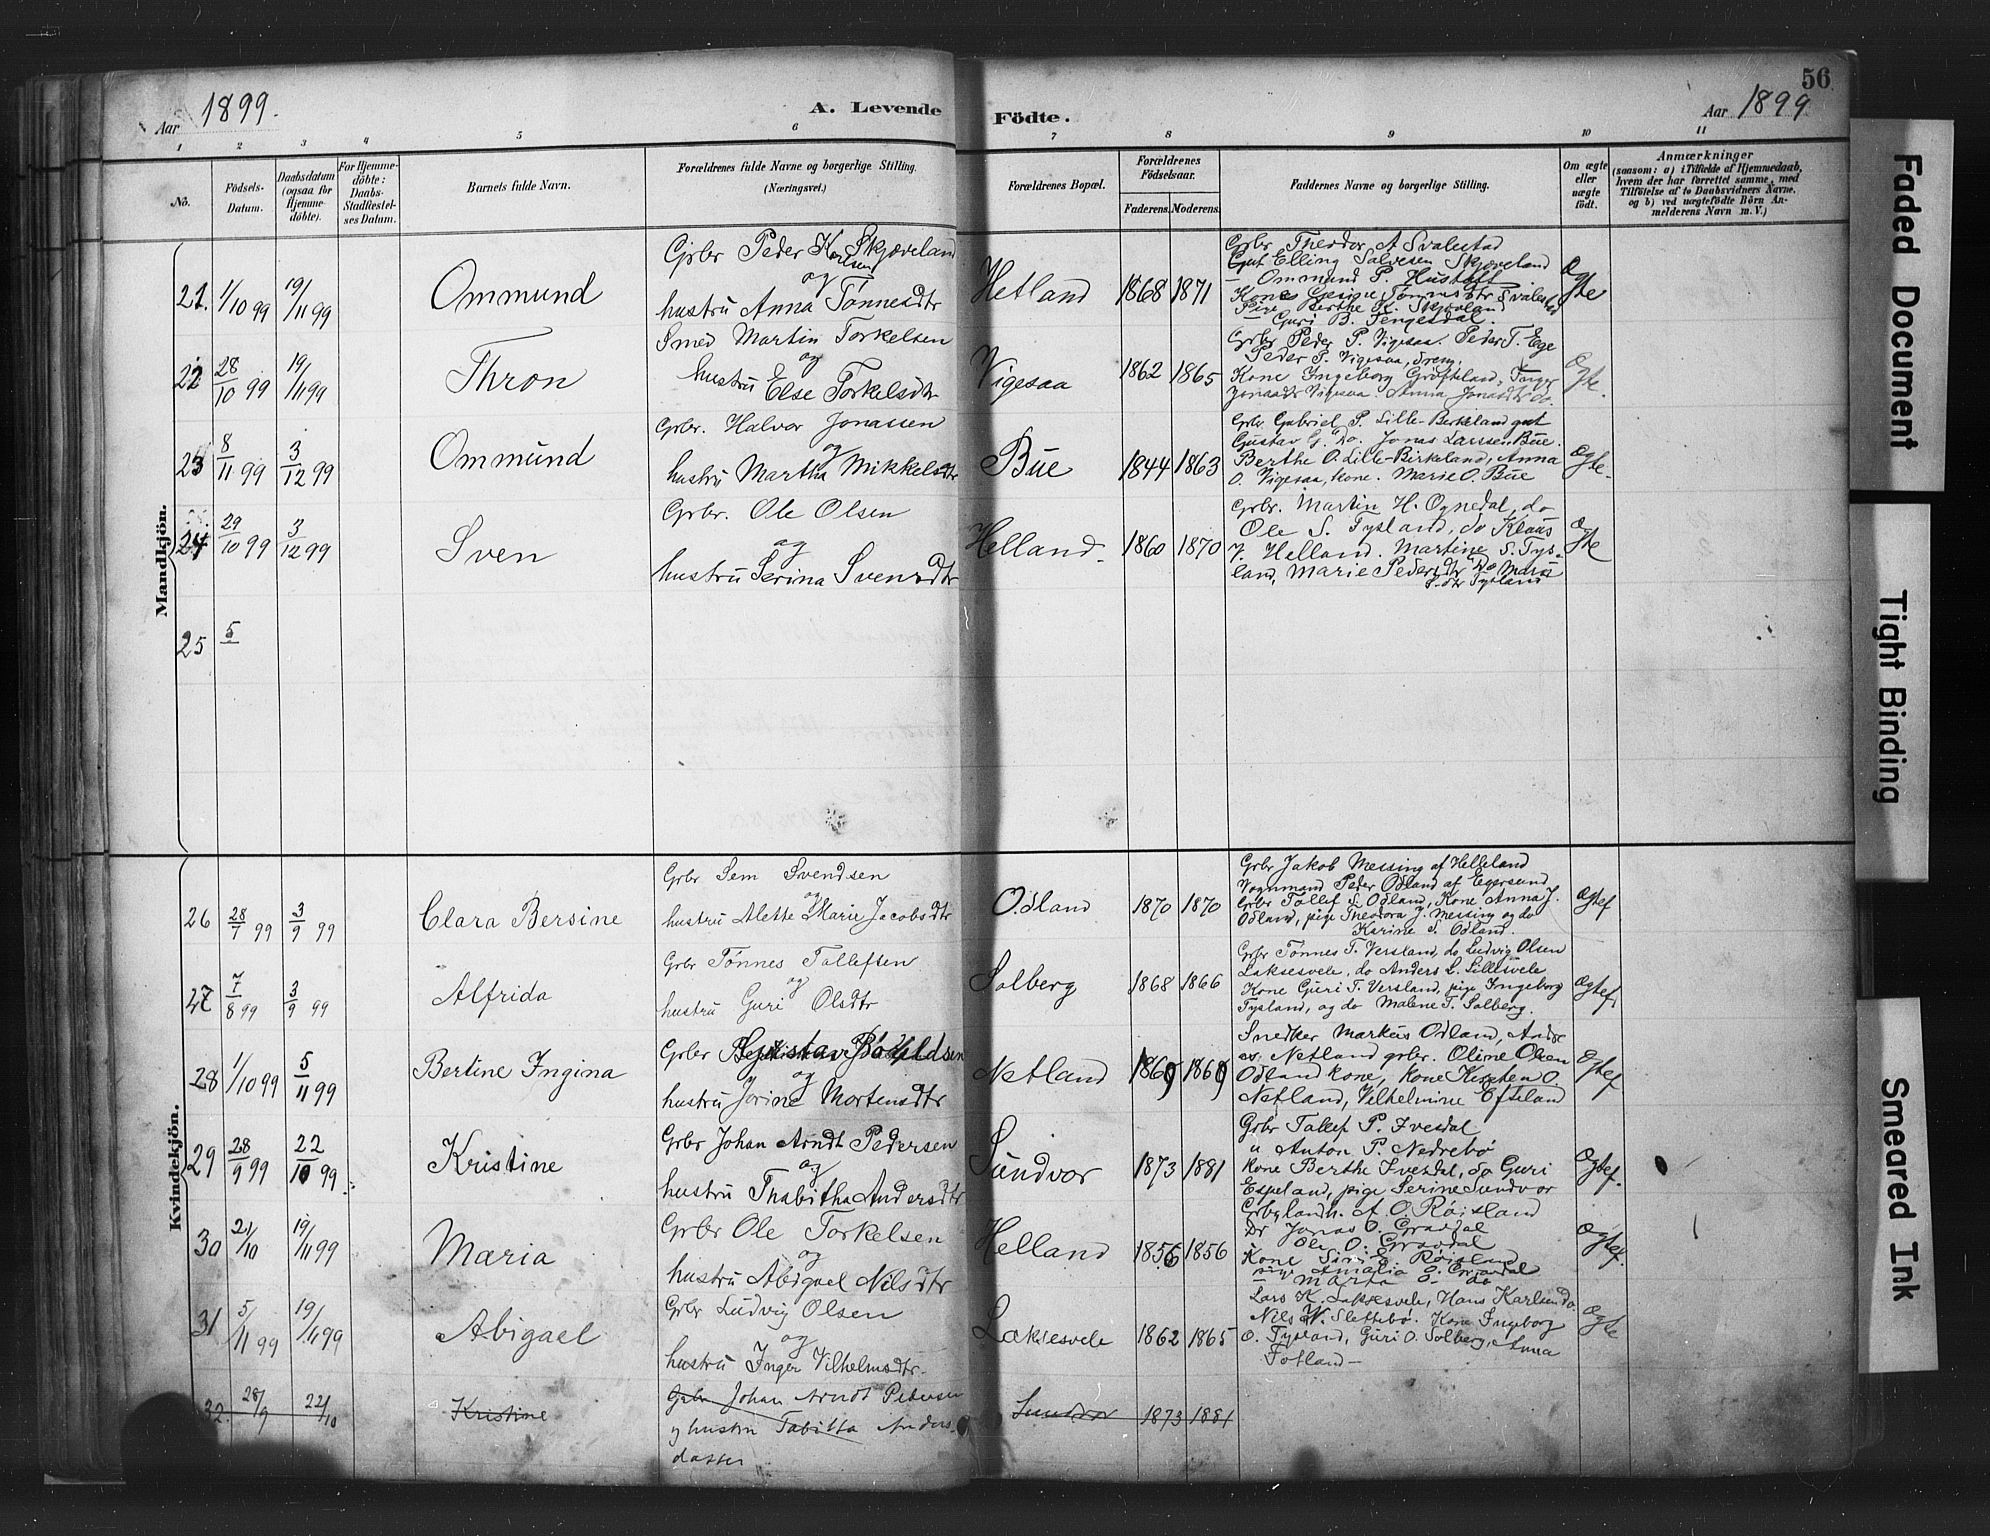 56
Aar 1899.
A. Levende Födte.
Aar 1899
1 2 3 4 5 6 7 8 9 10 11
No.
Födsels-Datum.
Daabsdatum (ogsaa for Hjemme-döbte).
For Hjemme-döbte: Daabs-Stadfæstel-ses Datum.
Barnets fulde Navn.
Forældrenes fulde Navne og borgerlige Stilling.
(Næringsvei.)
Forældrenes Bopæl.
Forældrenes Födselsaar.
Faderens. Moderens.
Faddernes Navne og borgerlige Stilling.
Om ægte eller uægte födt.
Anmærkninger
(saasom: a) i Tilfælde af Hjemmedaab, hvem der har forrettet samme, med Tilföielse af to Daabsvidners Navne, og b) ved uægtefödte Börn An-melderens Navn m. V.)
Mandkjön.
21. 1/10 99 19/11 99 Ommund
Grbr Peder Karlsen Skjæveland
og
hustru Anna Tønnesdtr
Hetland 1868 1871
Grbr Theodor A Svalestad
Gut Elling Salvesen Skjæveland
Ommund P. Hustoft
Kone Gesine Tønnesdtr Svalestad
Pige Berthe K. Skjæveland
Guri B. Tengesdal.
Ægte
22 28/10 99 19/11 99 Thron
Smed Martin Torkelsen
og
hustru Else Torkelsdtr
Vigesaa 1862 1865
Grbr Peder P. Vigesaa. Peder T. Ege
Peder P. Vigesaa, dreng,
Kone Ingeborg Grøfteland, Inger
Jonasdtr Vigesaa. Anna Jonasdtr do.
Ægte.
23 8/11 99 3/12 99 Ommund
Grbr. Halvor Jonassen
og
hustru Martha Mikkelsdtr
Bue 1844 1863
Grbr Gabriel P. Lille-Birkeland gut
Gustav G. Do. Jonas Larssen Bue.
Berthe O. Lille-Birkeland, Anna
O. Vigesaa, kone. Marie O. Bue
Ægte.
24 29/10 99 3/12 99 Sven
Grbr. Ole Olsen
og
hustru Serina Svensdtr
Helland 1860 1870
Grbr. Martin H. Ognedal, do
Ole S. Tysland, do Klaus
J. Helland. Martine S. Tys-
land, Marie Pedersdtr Do Marie
P.dtr Tysland
Ægte
25 5
Kvindekjön.
26 28/7 99 3/9 99 Clara Bersine
Grbr Sem Svendsen
og
hustru Alette Marie Jacobsdtr
Odland 1870 1870
Grbr Jakob Messing af Helleland
Vognmand Peder Odland af Egersund
Grbr Tollef S. Odland, Kone Anna J.
Odland, pige Theodora J. Messing og do
Karine S. Odland.
Ægtef
27 7/8 99 3/9 99 Alfrida
Grbr Tønnes Tollefsen
og
hustru Guri Olsdtr
Solberg 1868 1866
Grbr Tønnes T. Versland, do Ludvig Olsen
Laksesvele, do Anders L. Lillesvele
Kone Guri T. Versland, pige Ingeborg
Tysland, og do Malene T. Solberg.
Ægtef.
28 1/10 99 5/11 99 Bertine Ingina
Grbr Gustav
og
hustru Jorine Mortensdtr
Netland 1869 1869
Snedker Markus Odland, Andr
as Netland grbr. Oline Olsen
Odland kone, kone Kirsten O.
Netland, Vilhelmine Efteland
Ægtef
29 28/9 99 22/10 99 Kristine
Grbr Johan Arndt Pedersen
og
hustru Thabitha Andersdtr
Sundvor 1873 1881
Grbr Tallef P. Ivesdal
" Anton P. Nedrebø
Kone Berthe Ivesdal, do Guri
Espeland, pige Serine Sundvor
Ægtef.
30 21/10 19/11 99 Maria
Grbr Ole Torkelsen
og
hustru Abigael Nilsdtr
Helland 1856 1856
A. O. Røisland
Dr Jonas O. Gravdal
Ole O. Gravdal
Kone Siri E. Røisland
Amalia O. Gravdal
Marta O. do
Ægtef.
31 5/11 99 19/11 99 Abigael
Grbr Ludvig Olsen
og
hustru Inger Vilhelmsdtr.
Laksesvele 1862 1865
Lars K. Laksesvele, Hans Karlsen do.
Nils W. Slettebø. Kone Ingeborg
O. Tysland, Guri O. Solberg, Anna
Fotland—
Ægte
32. 28/9 22/10 Kristine
Grbr Johan Arndt Pedersen
og hustru Tabitta Anders-
datter
Sundvor 1873 1881
Faded Document
Tight Binding
Smeared Ink